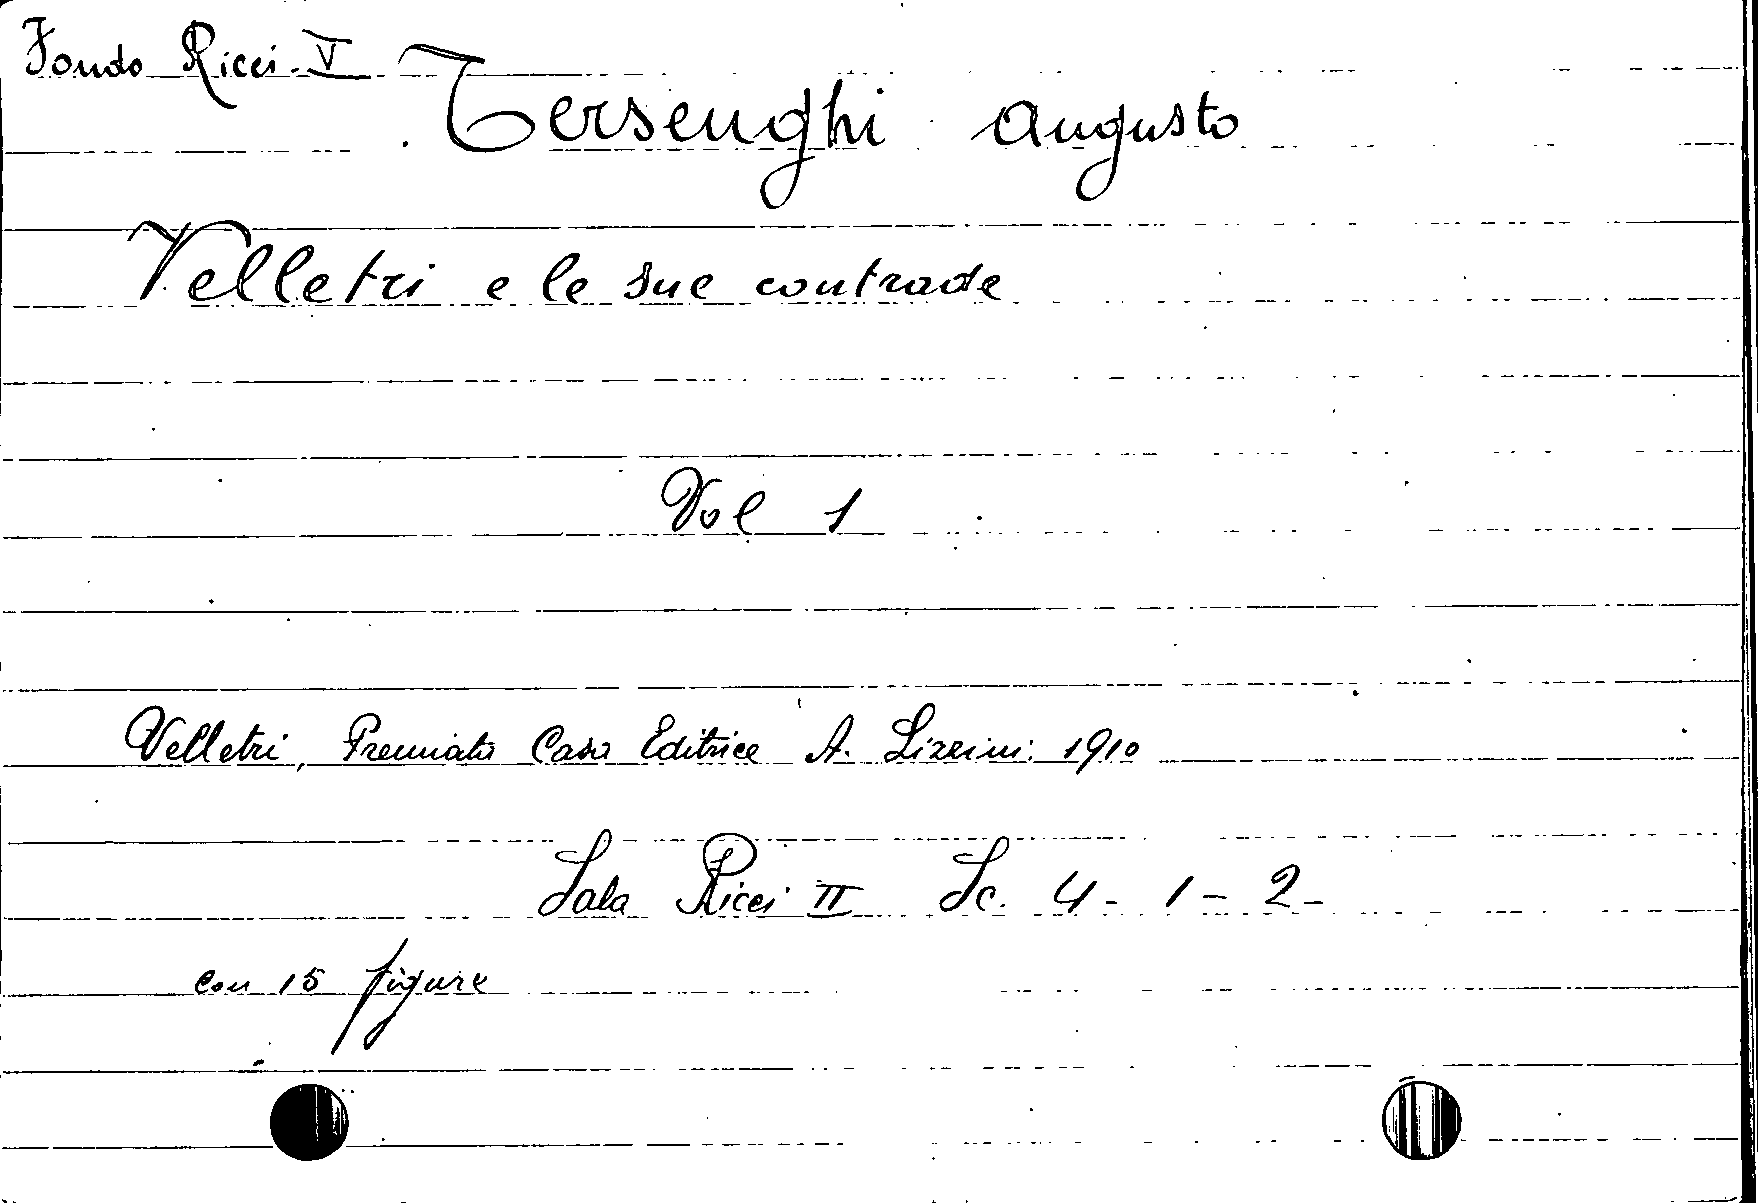 Fondo Ricci V
Tersenghi Augusto
Velletri e le sue contrade
Vol 1
Velletri, Premiata Casa Editrice A. Lizzini. 1910
Sala Ricci II Sc. 4 - 1 - 2 -
con 15 figure